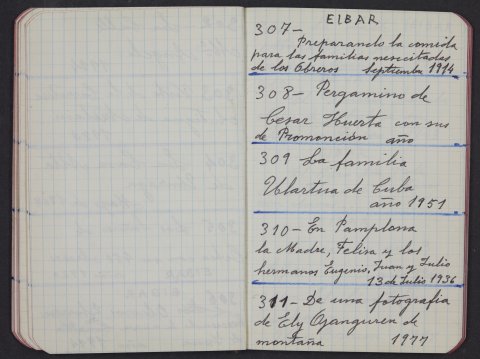 EIBAR
307-
Preparando la comida
para las familias nescitadas
de los Obreros Septiembre 1914
308- Pergamino de
Cesar Huerta con sus
de Promonción año
309 La familia
Ulartua de Cuba
año 1951
310- En Pamplona
la Madre, Felisa y los
hermanos Eugenio, Juan y Julio
13 de Julio 1936
311- De una fotografia
de Ely Ojanguren de
montaña 1977